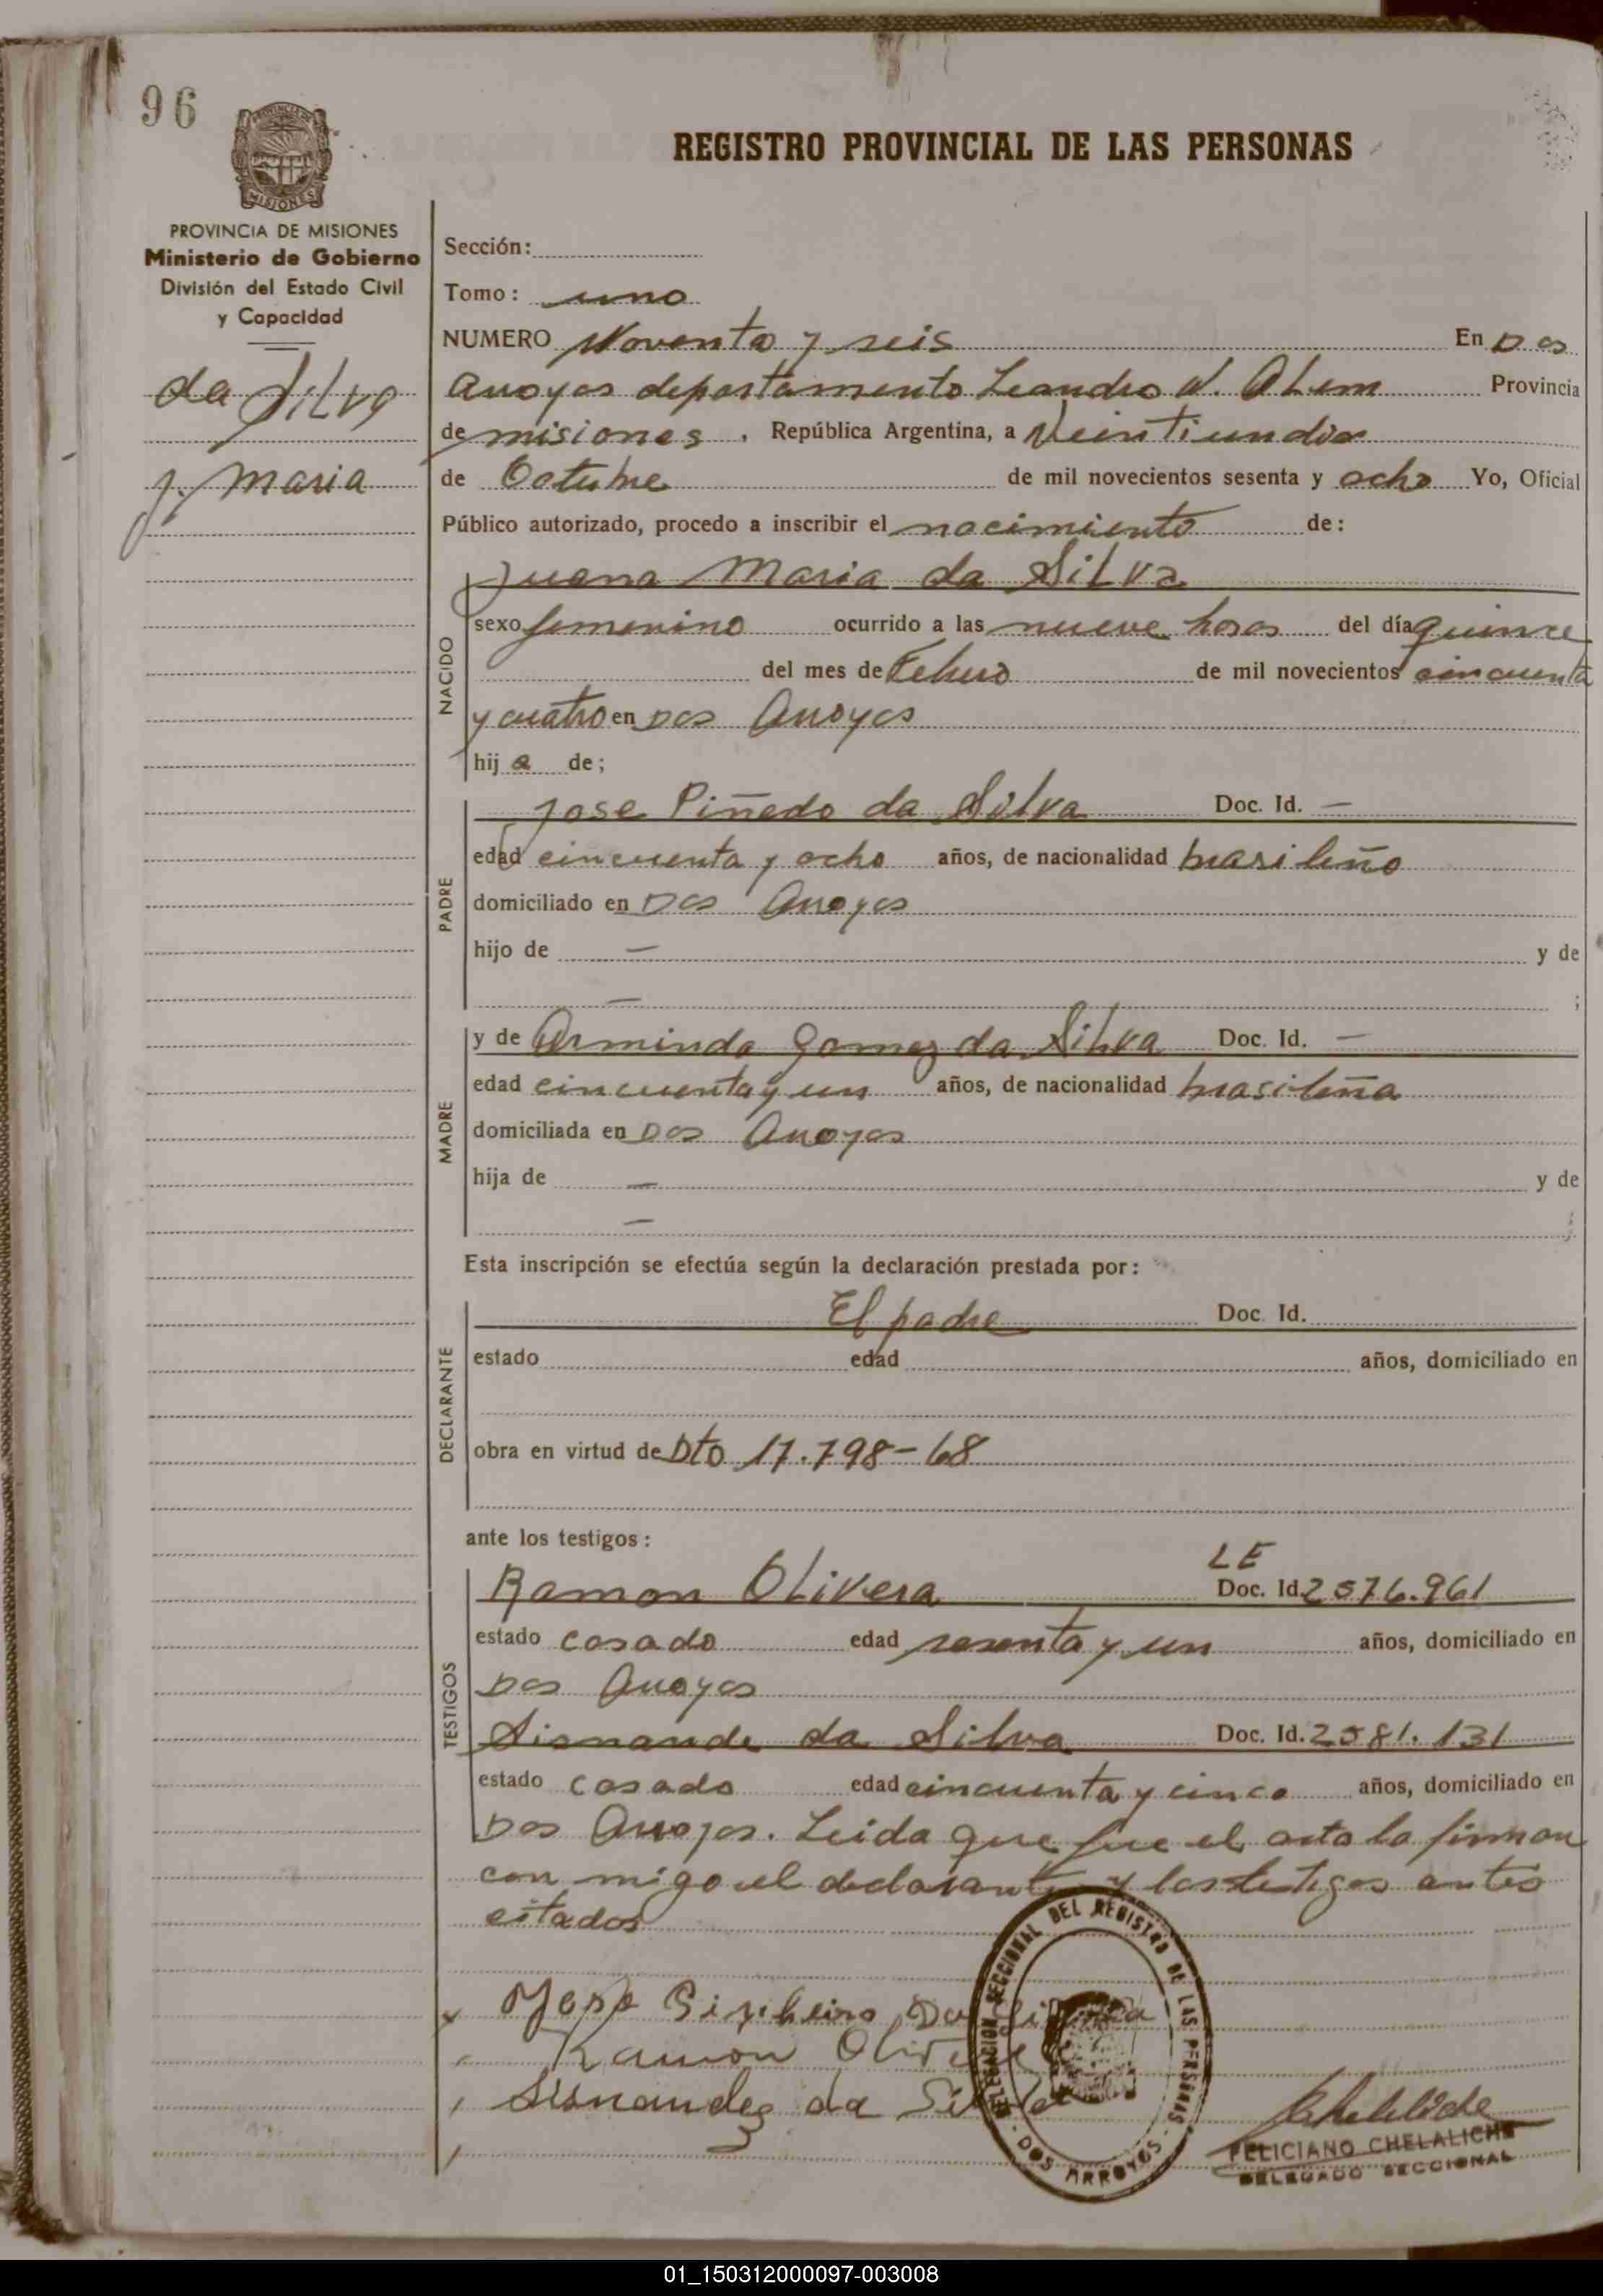 96
MISIONES
REGISTRO PROVINCIAL DE LAS PERSONAS
PROVINCIA DE MISIONES
Ministerio de Gobierno
División del Estado Civil
y Capacidad
da Silva
J. Maria
Sección:
Tomo: uno
NUMERO Noventa y seis En Dos
Arroyos departamento Leandro N. Alem Provincia
de misiones. República Argentina, a Veintiun dia
de Octubre de mil novecientos sesenta y ocho Yo, Oficial
Público autorizado, procedo a inscribir el nacimiento de:
NACIDO
Juana Maria da Silva
sexo femenino ocurrido a las nueve horas del día quince
del mes de Febrero de mil novecientos cincuenta
y cuatro en Dos Arroyos
hij a de;
PADRE
Jose Piñedo da Silva Doc. Id. —
edad cincuenta y ocho años, de nacionalidad brasileño
domiciliado en Dos Arroyos
hijo de — y de
— ;
MADRE
y de Arminda Gomez da Silva Doc. Id. —
edad cincuenta y un años, de nacionalidad brasileña
domiciliada en Dos Arroyos
hija de — y de
— ;
Esta inscripción se efectúa según la declaración prestada por:
DECLARANTE
El padre Doc. Id.
estado edad años, domiciliado en
obra en virtud de Dto 17.798-68
ante los testigos:
TESTIGOS
LE
Ramon Olivera Doc. Id. 2576.961
estado casado edad sesenta y un años, domiciliado en
Dos Arroyos
Sisnande da Silva Doc. Id. 2581.131
estado casado edad cincuenta y cinco años, domiciliado en
Dos Arroyos. Leida que fue el acta la firman
con migo el declarante y los testigos antes
citados
Da Silva
Ramon Olivera
Sisnandes da Silva
DELEGACION SECCIONAL DEL REGISTRO DE LAS PERSONAS
DOS ARROYOS
Chelaliche
FELICIANO CHELALICHE
DELEGADO SECCIONAL
01_150312000097-003008